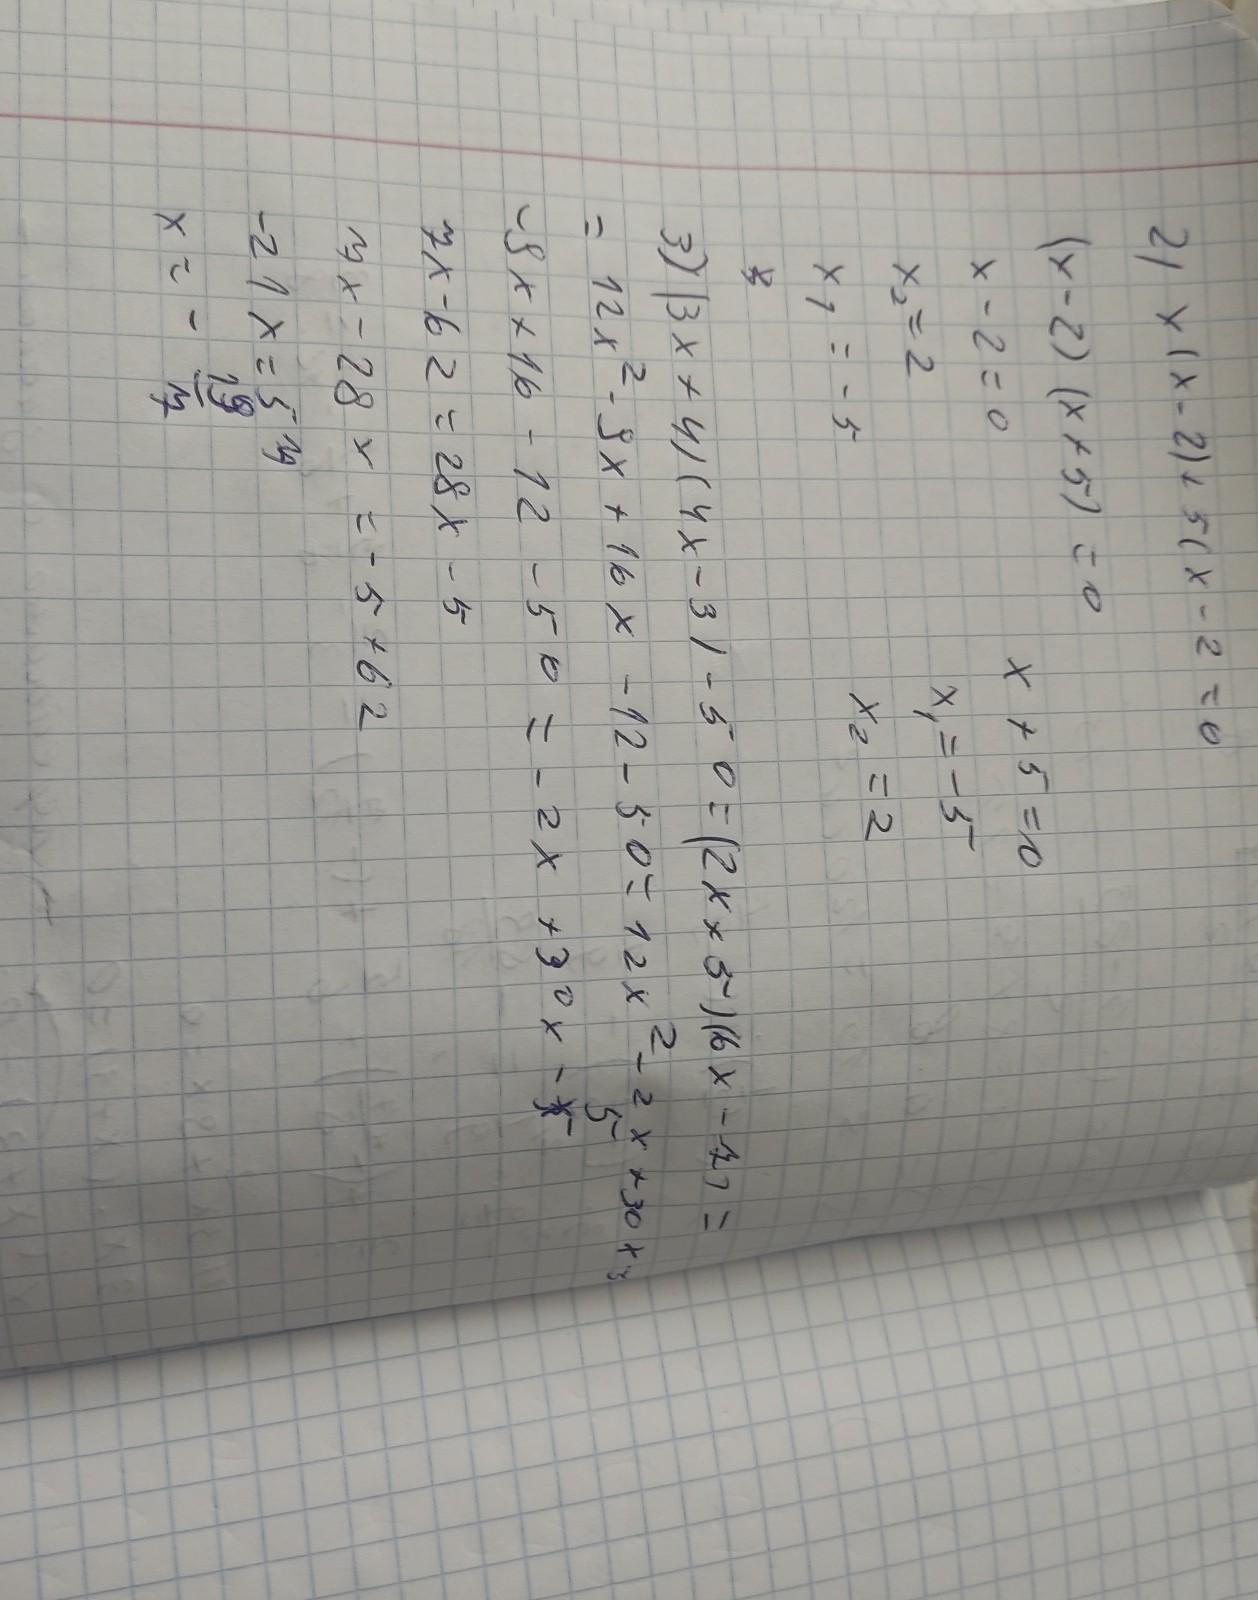 2) x(x-2)+5(x-2=0
(x-2)(x+5)=0
x-2=0 x+5=0
x₂=2 x₁=-5
x₁=-5 x₂=2
3)(3x+4)(4x-3)-50=(2x+5)(6x-1)=
=12x²-9x+16x-12-50=12x²-2x+30x
5
-9x+16-12-50=-2x+30x-5
7x-62=28x-5
7x-28x=-5+62
-21x=57
x=-19/7